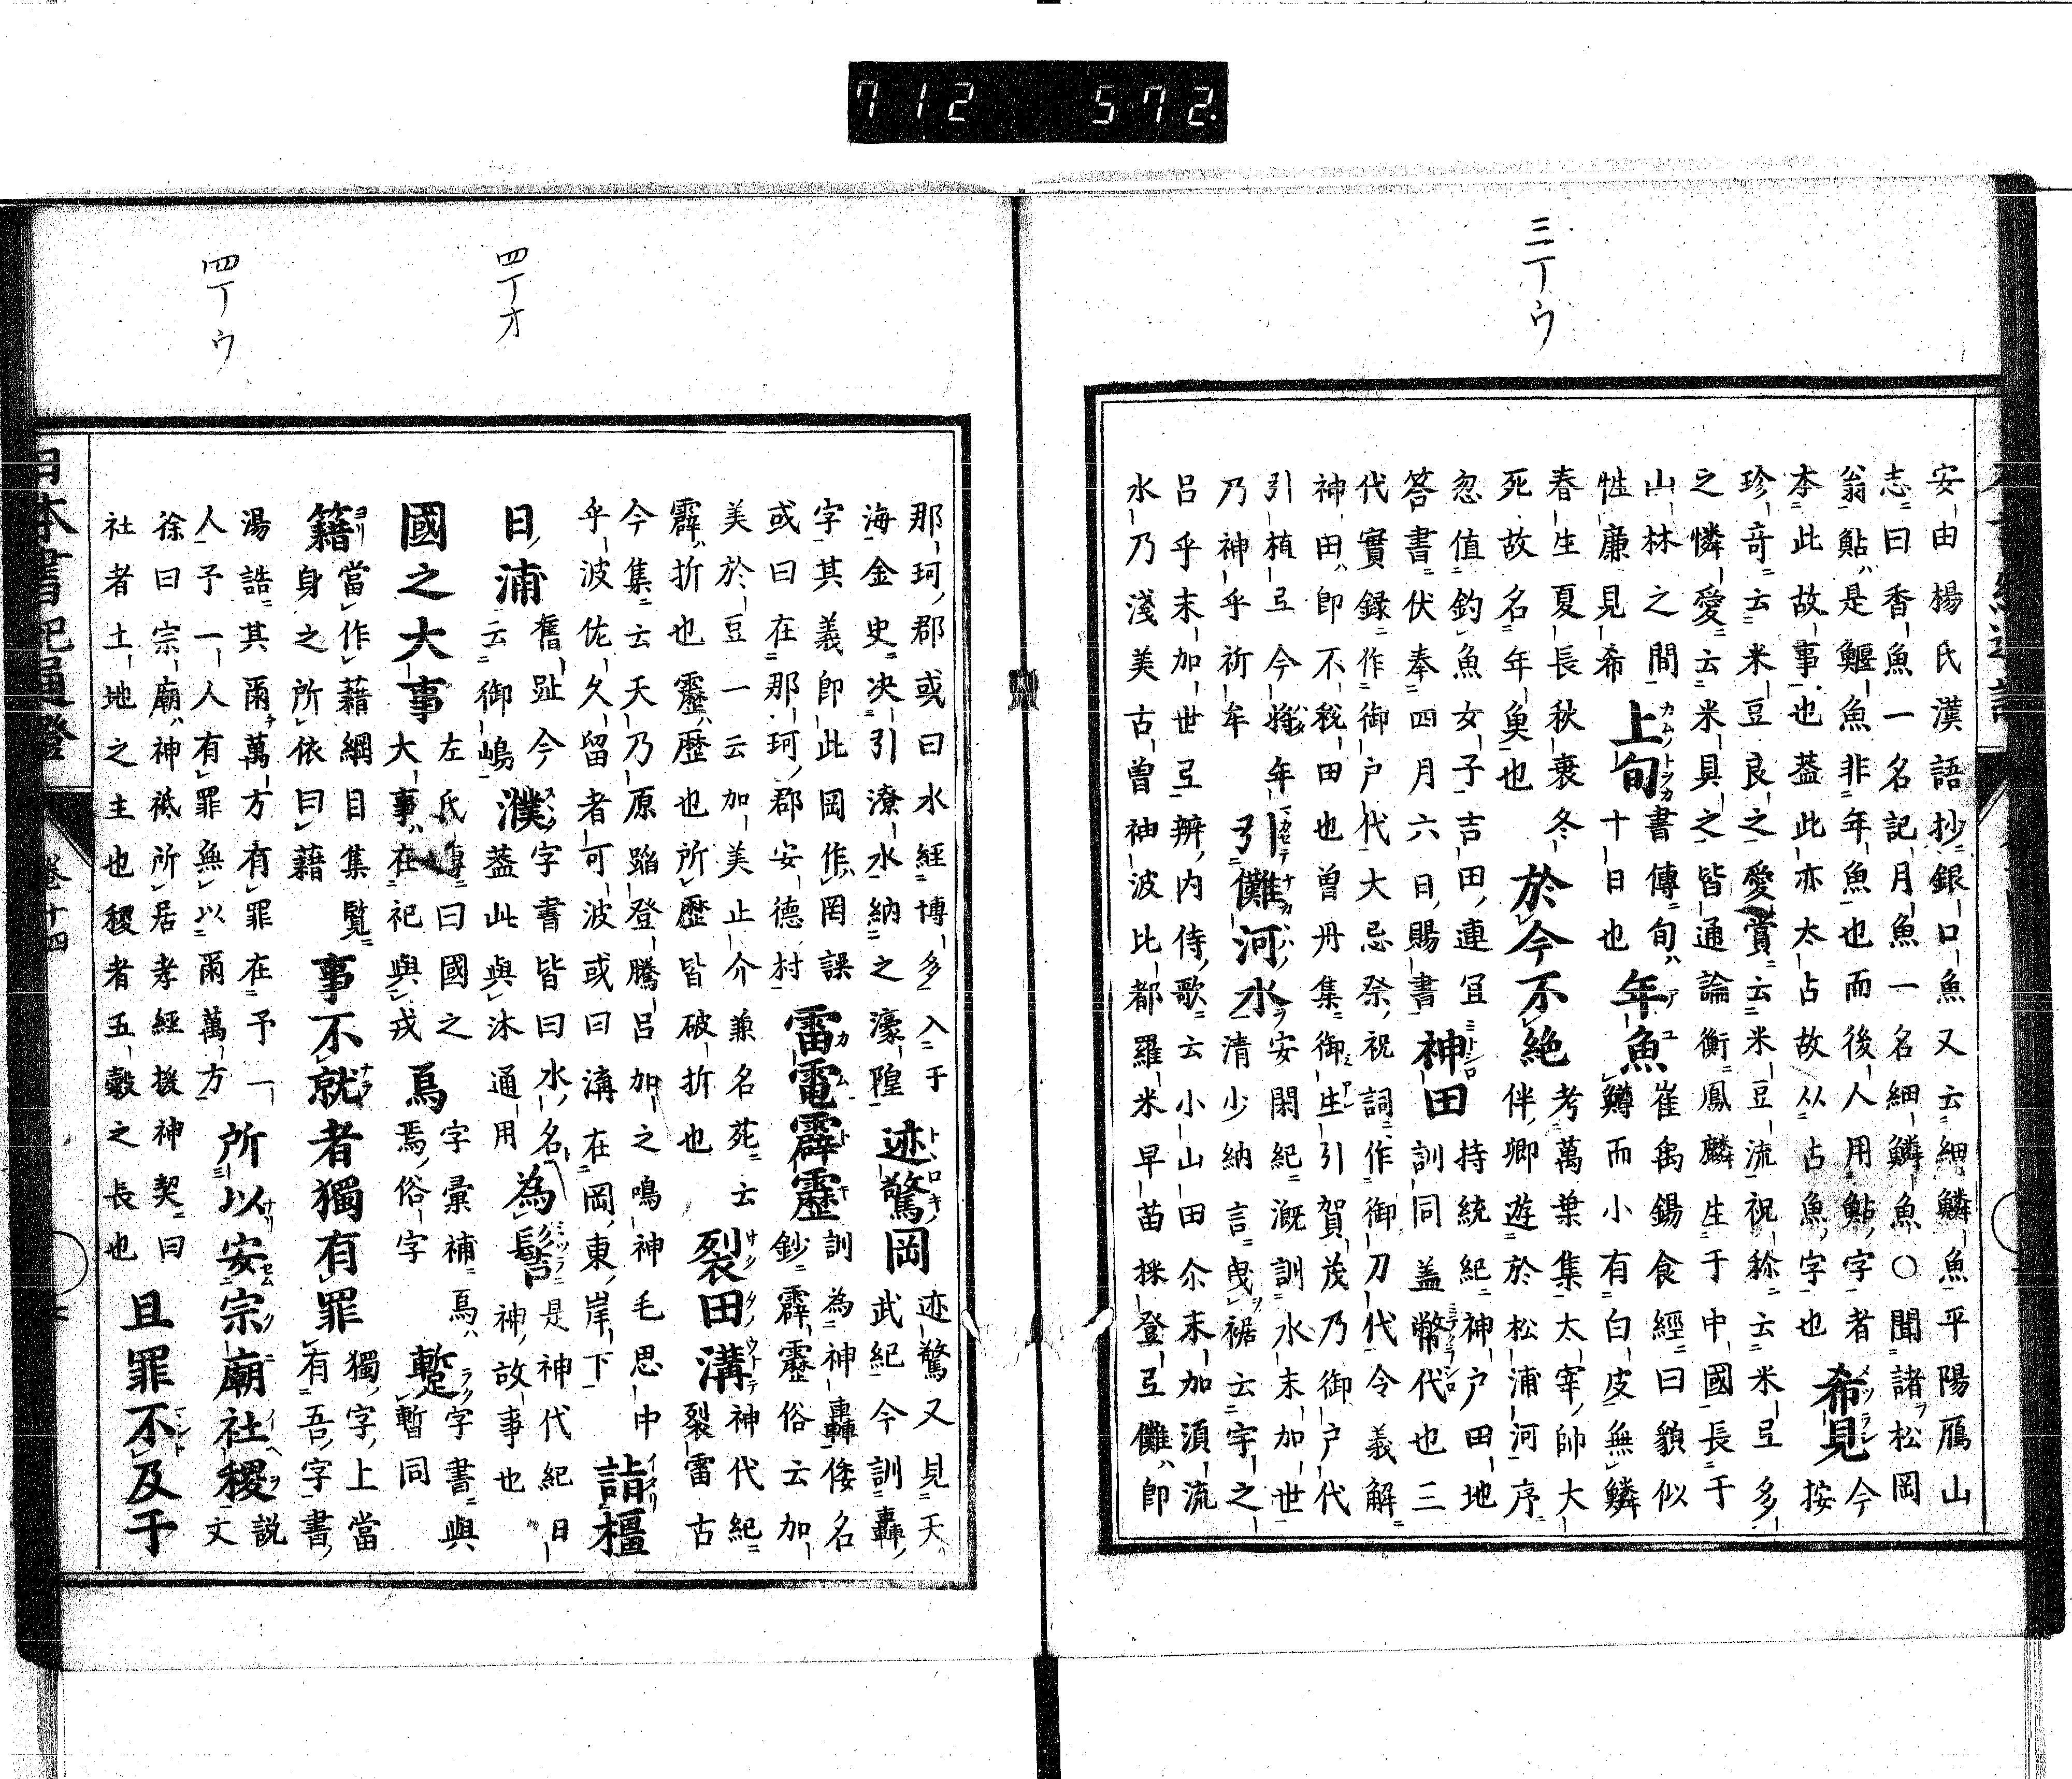 712 572.
三丁ウ
安由楊氏漢語抄銀口魚又云細鱗魚平陽鴈山
志曰香魚一名記月魚一名細鱗魚○聞諸松岡
翁鮎是鰋魚非年魚也而後人用鮎字者希見今
本此故事也蓋此亦太占故以占魚字也按
珍奇云米豆良之愛賞云米豆流祝稱云米弖多
之憐愛云米具之皆通論衡鳳麟生于中國長于
山林之間上旬書傳旬年魚崔禹錫食經曰貌似
性廉見希十日也鱒而小有白皮無鱗
春生夏長秋衰冬於今不絶考萬葉集大宰帥大
死故名年魚也伴卿遊於松浦河序
忽値釣魚女子吉田連宜神田持統紀神戸田地
答書伏奉四月六日賜書訓同蓋幣代也三
代實録作御戸代大忌祭祝詞作御刀代令義解
神田即不税田也曽丹集御生引賀茂乃御戸代
引植弖今將年引儺河水安閑紀漑訓水末加世
乃神乎祈年清少納言曳裾云字之
呂乎末加世弖辨内侍歌云小山田尒末加須流
水乃淺美古曽袖波比都羅米早苗採登弖儺即
四丁オ
四丁ウ
那珂郡或曰水經博多入于迹驚岡迹驚又見天
海金史决引潦水納之濠隍武紀今訓轟
字其義即此岡作罔誤雷電霹靂訓為神轟倭名
或曰在那珂郡安德村鈔霹靂俗云加
美於豆一云加美止介兼名苑云裂田溝神代紀
霹折也靂歴也所歴皆破折也裂雷古
今集云天乃原蹈登騰呂加之鳴神毛思中
乎波佐久留者可波或曰溝在岡東岸下詣橿
日浦舊趾今濮字書皆曰水名為髻是神代紀日
云御嶋蓋此與沐通用神故事也
國之大事左氏傳曰國之焉字彙補焉暫字書與
大事在祀與戎焉俗字暫同
籍當作藉綱目集覧事不就者獨有罪獨字上當
身之所依曰藉有吾字書
湯誥其爾萬方有罪在予一所以安宗廟社稷説
人予一人有罪無以爾萬方文
徐曰宗廟神祗所居孝經援神契曰且罪不及于
社者土地之主也稷者五穀之長也
日本書紀通證
卷十四